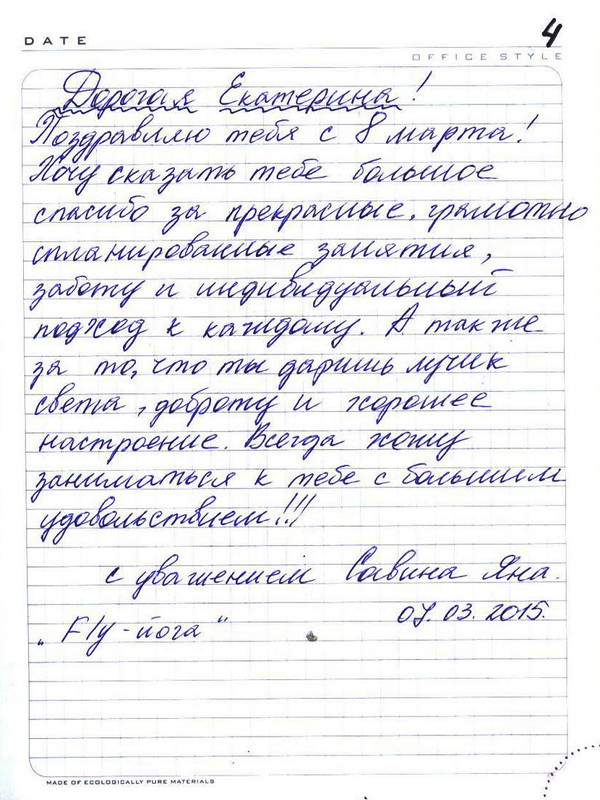 DATE
4
OFFICE STYLE
Дорогая Екатерина!
Поздравляю тебя с 8 марта!
Хочу сказать тебе большое
спасибо за прекрасные, грамотно
спланированные занятия,
заботу и индивидуальный
подход к каждому. А также
за то, что ты даришь лучик
света, доброту и хорошее
настроение. Всегда хожу
заниматься к тебе с большим
удовольствием!!!
с уважением Савина Яна.
07.03.2015.
„Fly-йога“
MADE OF ECOLOGICALLY PURE MATERIALS